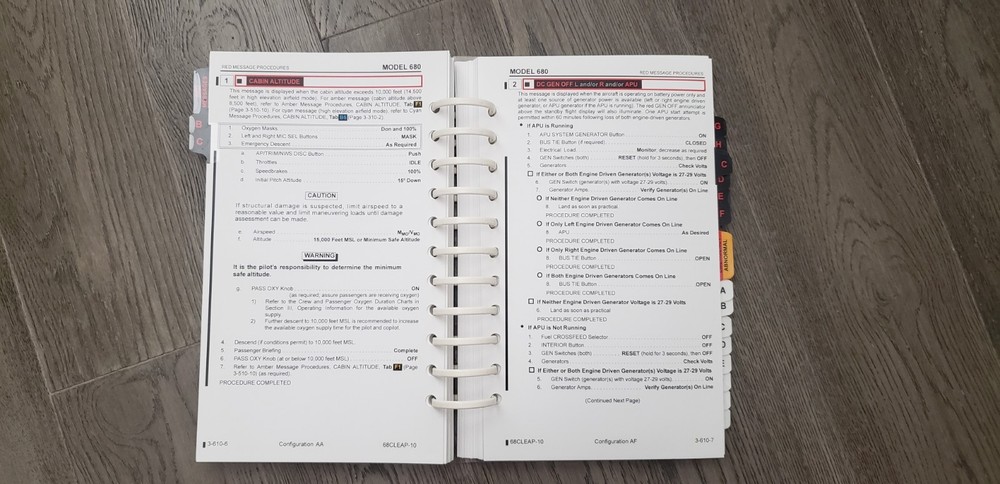 RED MESSAGE PROCEDURES MODEL 680
1 CABIN ALTITUDE
This message is displayed when the cabin altitude exceeds 10,000 feet (14,500
feet in high elevation airfield mode). For amber message (cabin altitude above
8,500 feet), refer to Amber Message Procedures, CABIN ALTITUDE, Tab F1
(Page 3-510-10). For cyan message (high elevation airfield mode), refer to Cyan
Message Procedures, CABIN ALTITUDE, Tab (Page 3-310-2).
1 Oxygen Masks Don and 100%
2 Left and Right MIC SEL Buttons MASK
3. Emergency Descent As Required
a AP/TRIM/NWS DISC Button Push
b Throttles IDLE
c Speedbrakes 100%
d Initial Pitch Attitude 15° Down
CAUTION
If structural damage is suspected, limit airspeed to a
reasonable value and limit maneuvering loads until damage
assessment can be made.
e Airspeed MMO/VMO
f Altitude 15,000 Feet MSL or Minimum Safe Altitude
WARNING
It is the pilot's responsibility to determine the minimum
safe altitude.
g PASS OXY Knob ON
(as required; assure passengers are receiving oxygen)
1) Refer to the Crew and Passenger Oxygen Duration Charts in
Section II, Operating Information for the available oxygen
supply.
2) Further descent to 10,000 feet MSL is recommended to increase
the available oxygen supply time for the pilot and copilot.
4 Descend (if conditions permit) to 10,000 feet MSL.
5 Passenger Briefing Complete
6 PASS OXY Knob (at or below 10,000 feet MSL) OFF
7 Refer to Amber Message Procedures, CABIN ALTITUDE, Tab F1 (Page
3-510-10) (as required).
PROCEDURE COMPLETED
3-610-6 Configuration AA 68CLEAP-10
MODEL 680 RED MESSAGE PROCEDURES
2 DC GEN OFF L and/or R and/or APU
This message is displayed when the aircraft is operating on battery power only and
at least one source of generator power is available (left or right engine driven
generator, or APU generator if the APU is running). The red GEN OFF annunciator
above the standby flight display will also illuminate. One APU start attempt is
permitted within 60 minutes following loss of both engine driven generators.
* If APU is Running
1. APU SYSTEM GENERATOR Button ON
2. BUS TIE Button (if required) CLOSED
3. Electrical Load Monitor; decrease as required
4. GEN Switches (both) RESET (hold for 3 seconds), then OFF
5. Generators Check Volts
If Either or Both Engine Driven Generator(s) Voltage is 27-29 Volts
6. GEN Switch (generator(s) with voltage 27-29 volts) ON
7. Generator Amps Verify Generator(s) On Line
If Neither Engine Driven Generator Comes On Line
8. Land as soon as practical.
PROCEDURE COMPLETED
If Only Left Engine Driven Generator Comes On Line
8. APU As Desired
PROCEDURE COMPLETED
If Only Right Engine Driven Generator Comes On Line
8. BUS TIE Button OPEN
PROCEDURE COMPLETED
If Both Engine Driven Generators Comes On Line
8. BUS TIE Button OPEN
PROCEDURE COMPLETED
If Neither Engine Driven Generator Voltage is 27-29 Volts
6. Land as soon as practical.
PROCEDURE COMPLETED
* If APU is Not Running
1. Fuel CROSSFEED Selector OFF
2. INTERIOR Button OFF
3. GEN Switches (both) RESET (hold for 3 seconds), then OFF
4. Generators Check Volts
If Either or Both Engine Driven Generator(s) Voltage is 27-29 Volts
5. GEN Switch (generator(s) with voltage 27-29 volts) ON
6. Generator Amps Verify Generator(s) On Line
(Continued Next Page)
68CLEAP-10 Configuration AF 3-610-7
B
C
G
H
C
D
E
F
ABNORMAL
A
B
C
D